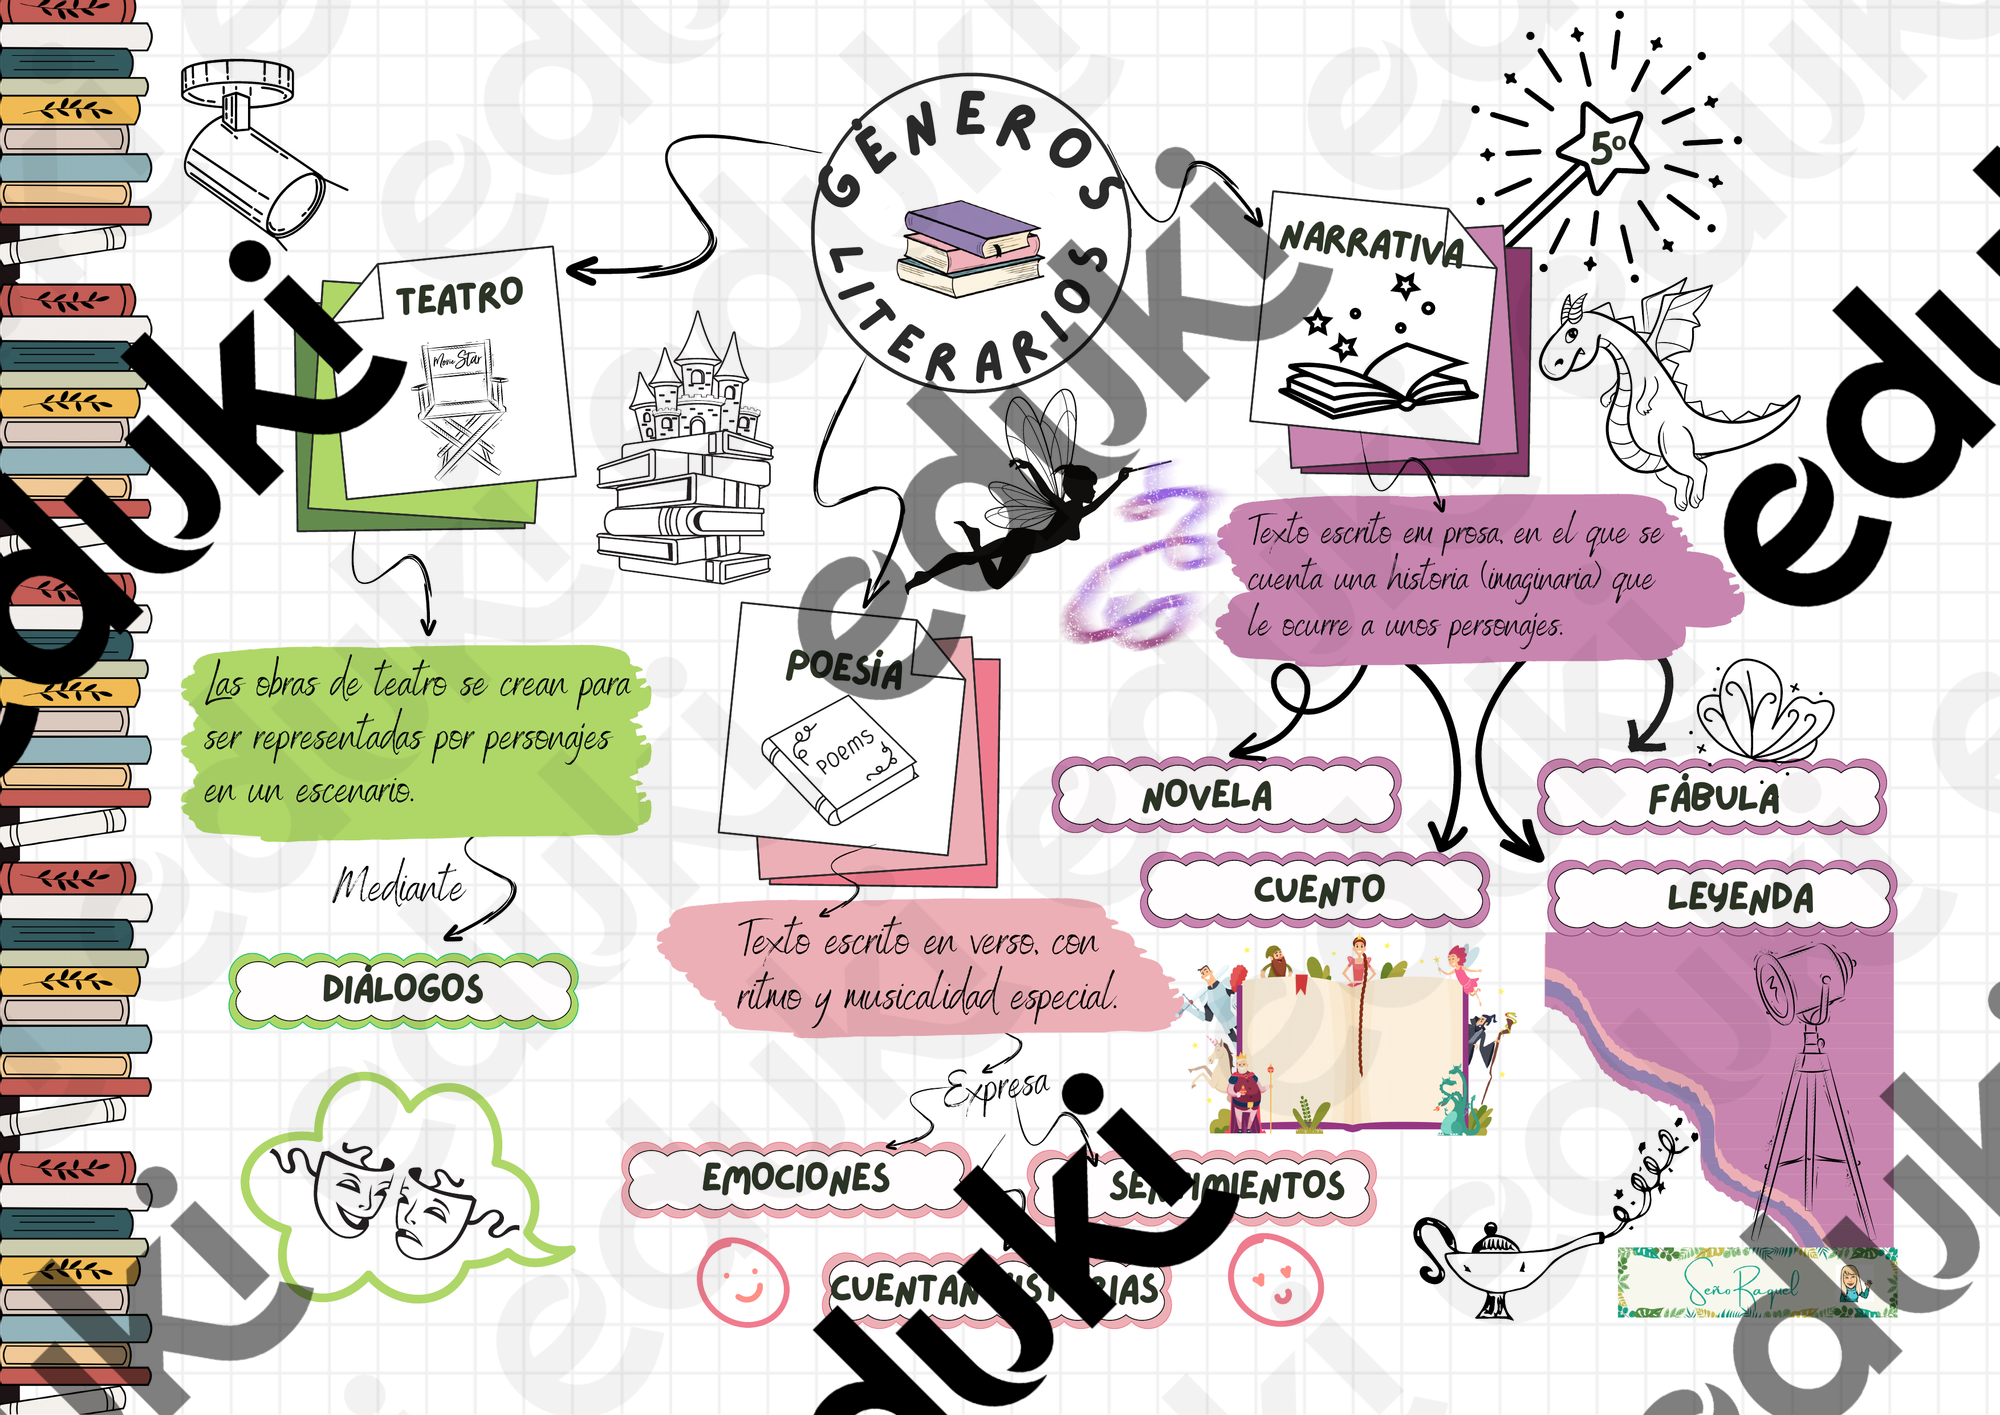 GÉNEROS
LITERARIOS
5º
TEATRO
Movie Star
Las obras de teatro se crean para
ser representadas por personajes
en un escenario.
Mediante
DIÁLOGOS
POESÍA
POEMS
Texto escrito en verso, con
ritmo y musicalidad especial.
Expresa
EMOCIONES
SENTIMIENTOS
CUENTAN HISTORIAS
NARRATIVA
Texto escrito en prosa, en el que se
cuenta una historia (imaginaria) que
le ocurre a unos personajes.
NOVELA
FÁBULA
CUENTO
LEYENDA
Seño Raquel
eduki
eduki
eduki
eduki
eduki
eduki